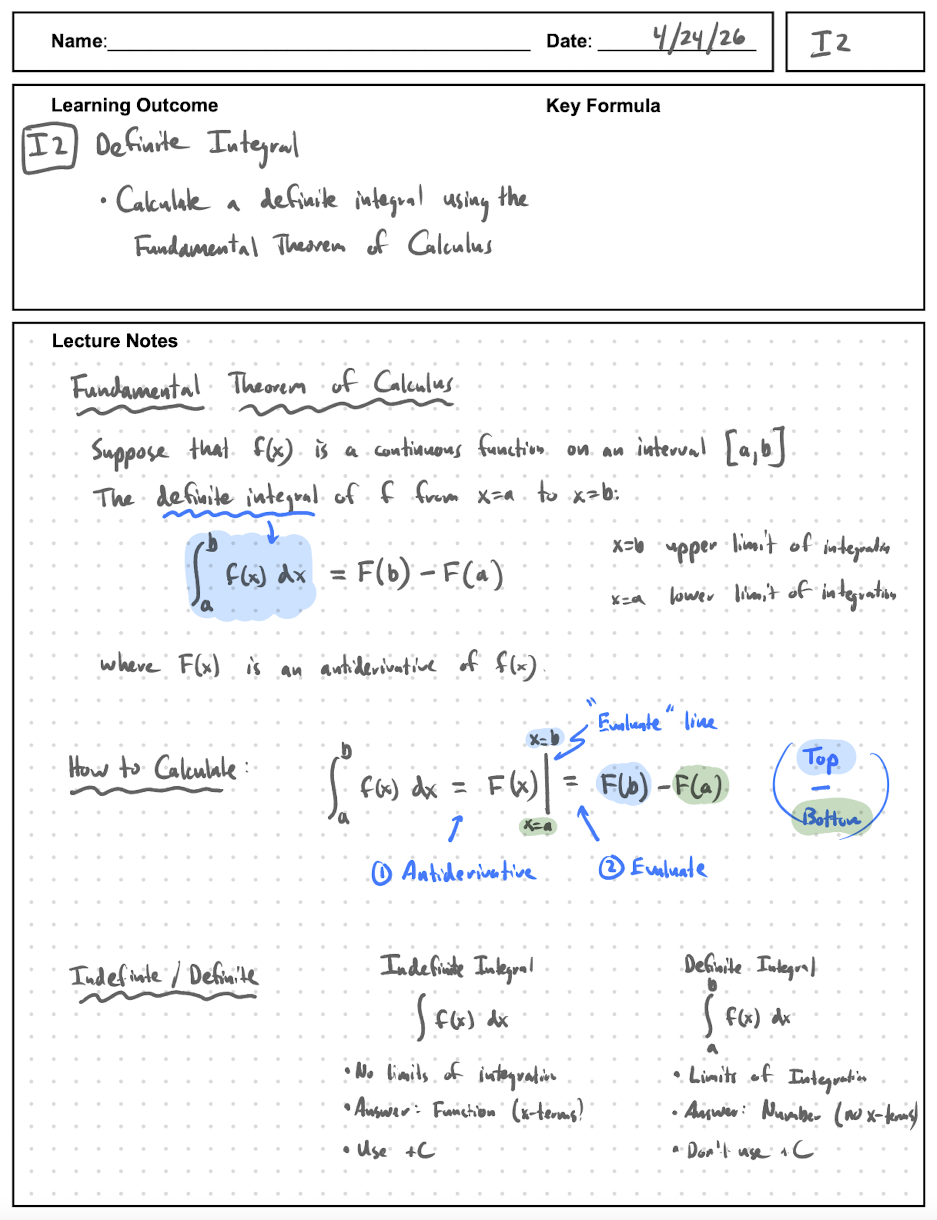 Name: Date: 4/24/26 I2
Learning Outcome Key Formula
I2 Definite Integral
• Calculate a definite integral using the
Fundamental Theorem of Calculus
Lecture Notes
Fundamental Theorem of Calculus
Suppose that f(x) is a continuous function on an interval [a,b]
The definite integral of f from x=a to x=b:
∫_a^b f(x) dx = F(b) - F(a)
x=b upper limit of integration
x=a lower limit of integration
where F(x) is an antiderivative of f(x).
"Evaluate" line
How to Calculate: ∫_a^b f(x) dx = F(x) |_{x=a}^{x=b} = F(b) - F(a) (Top - Bottom)
① Antiderivative ② Evaluate
Indefinite / Definite
Indefinite Integral
∫ f(x) dx
• No limits of integration
• Answer: Function (x-terms!)
• Use +C
Definite Integral
∫_a^b f(x) dx
• Limits of Integration
• Answer: Number (no x-terms)
• Don't use +C